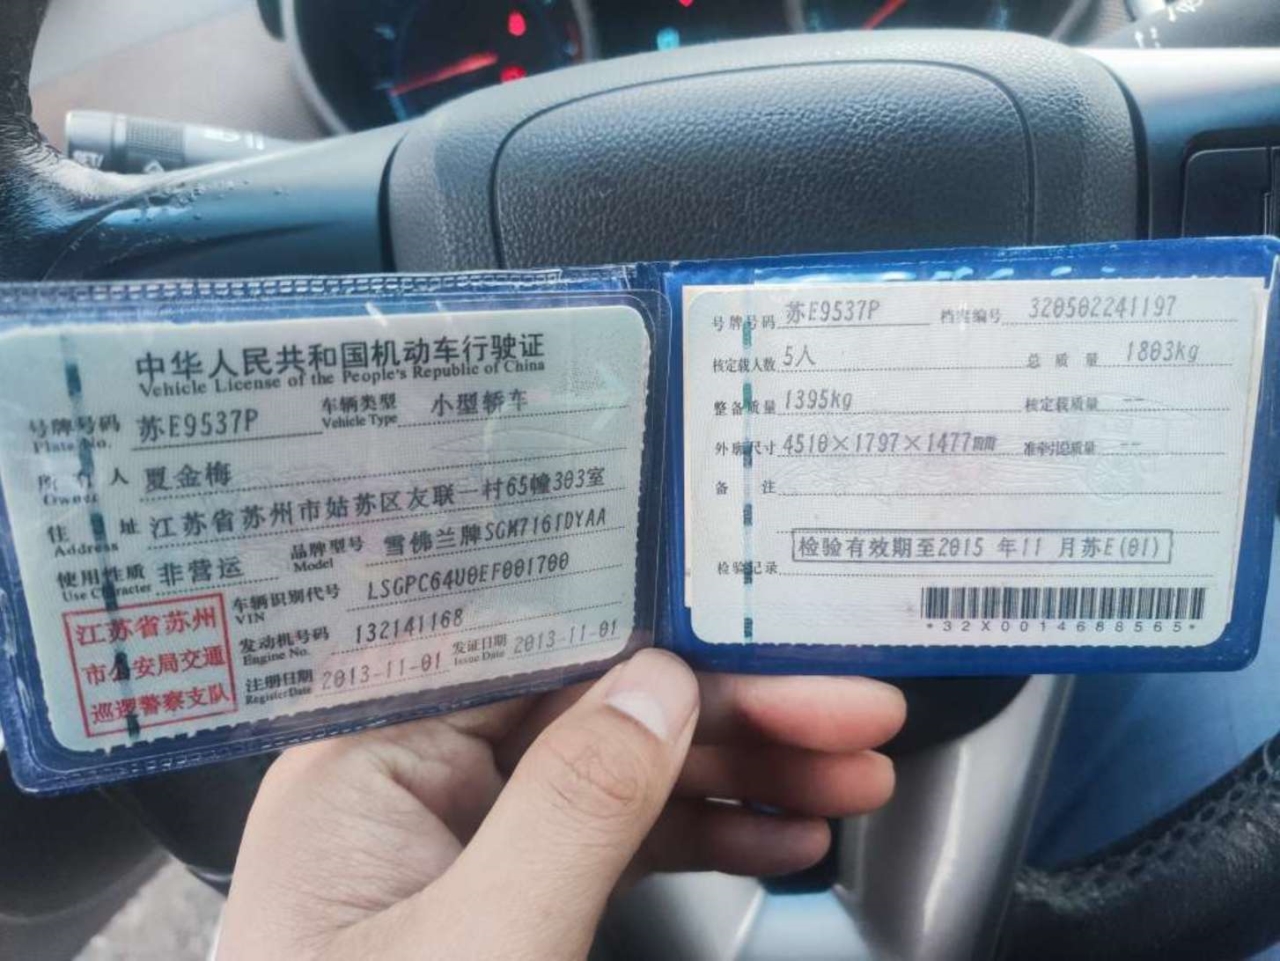 中华人民共和国机动车行驶证
Vehicle License of the People's Republic of China
号牌号码 苏E9537P 车辆类型 小型轿车
Plate No. Vehicle Type
所有人 夏金梅
Owner
住址 江苏省苏州市姑苏区友联一村65幢303室
Address
使用性质 非营运 品牌型号 雪佛兰牌SGM7161DYAA
Use Character Model
车辆识别代号 LSGPC64U0EF001700
VIN
发动机号码 132141168
Engine No.
注册日期 2013-11-01 发证日期 2013-11-01
Register Date Issue Date
江苏省苏州
市公安局交通
巡逻警察支队
号牌号码 苏E9537P 档案编号 320502241197
核定载人数 5人 总质量 1803kg
整备质量 1395kg 核定载质量 --
外廓尺寸 4510×1797×1477mm 准牵引总质量 --
备注
检验有效期至2015年11月苏E(01)
检验记录
*32X0014688565*